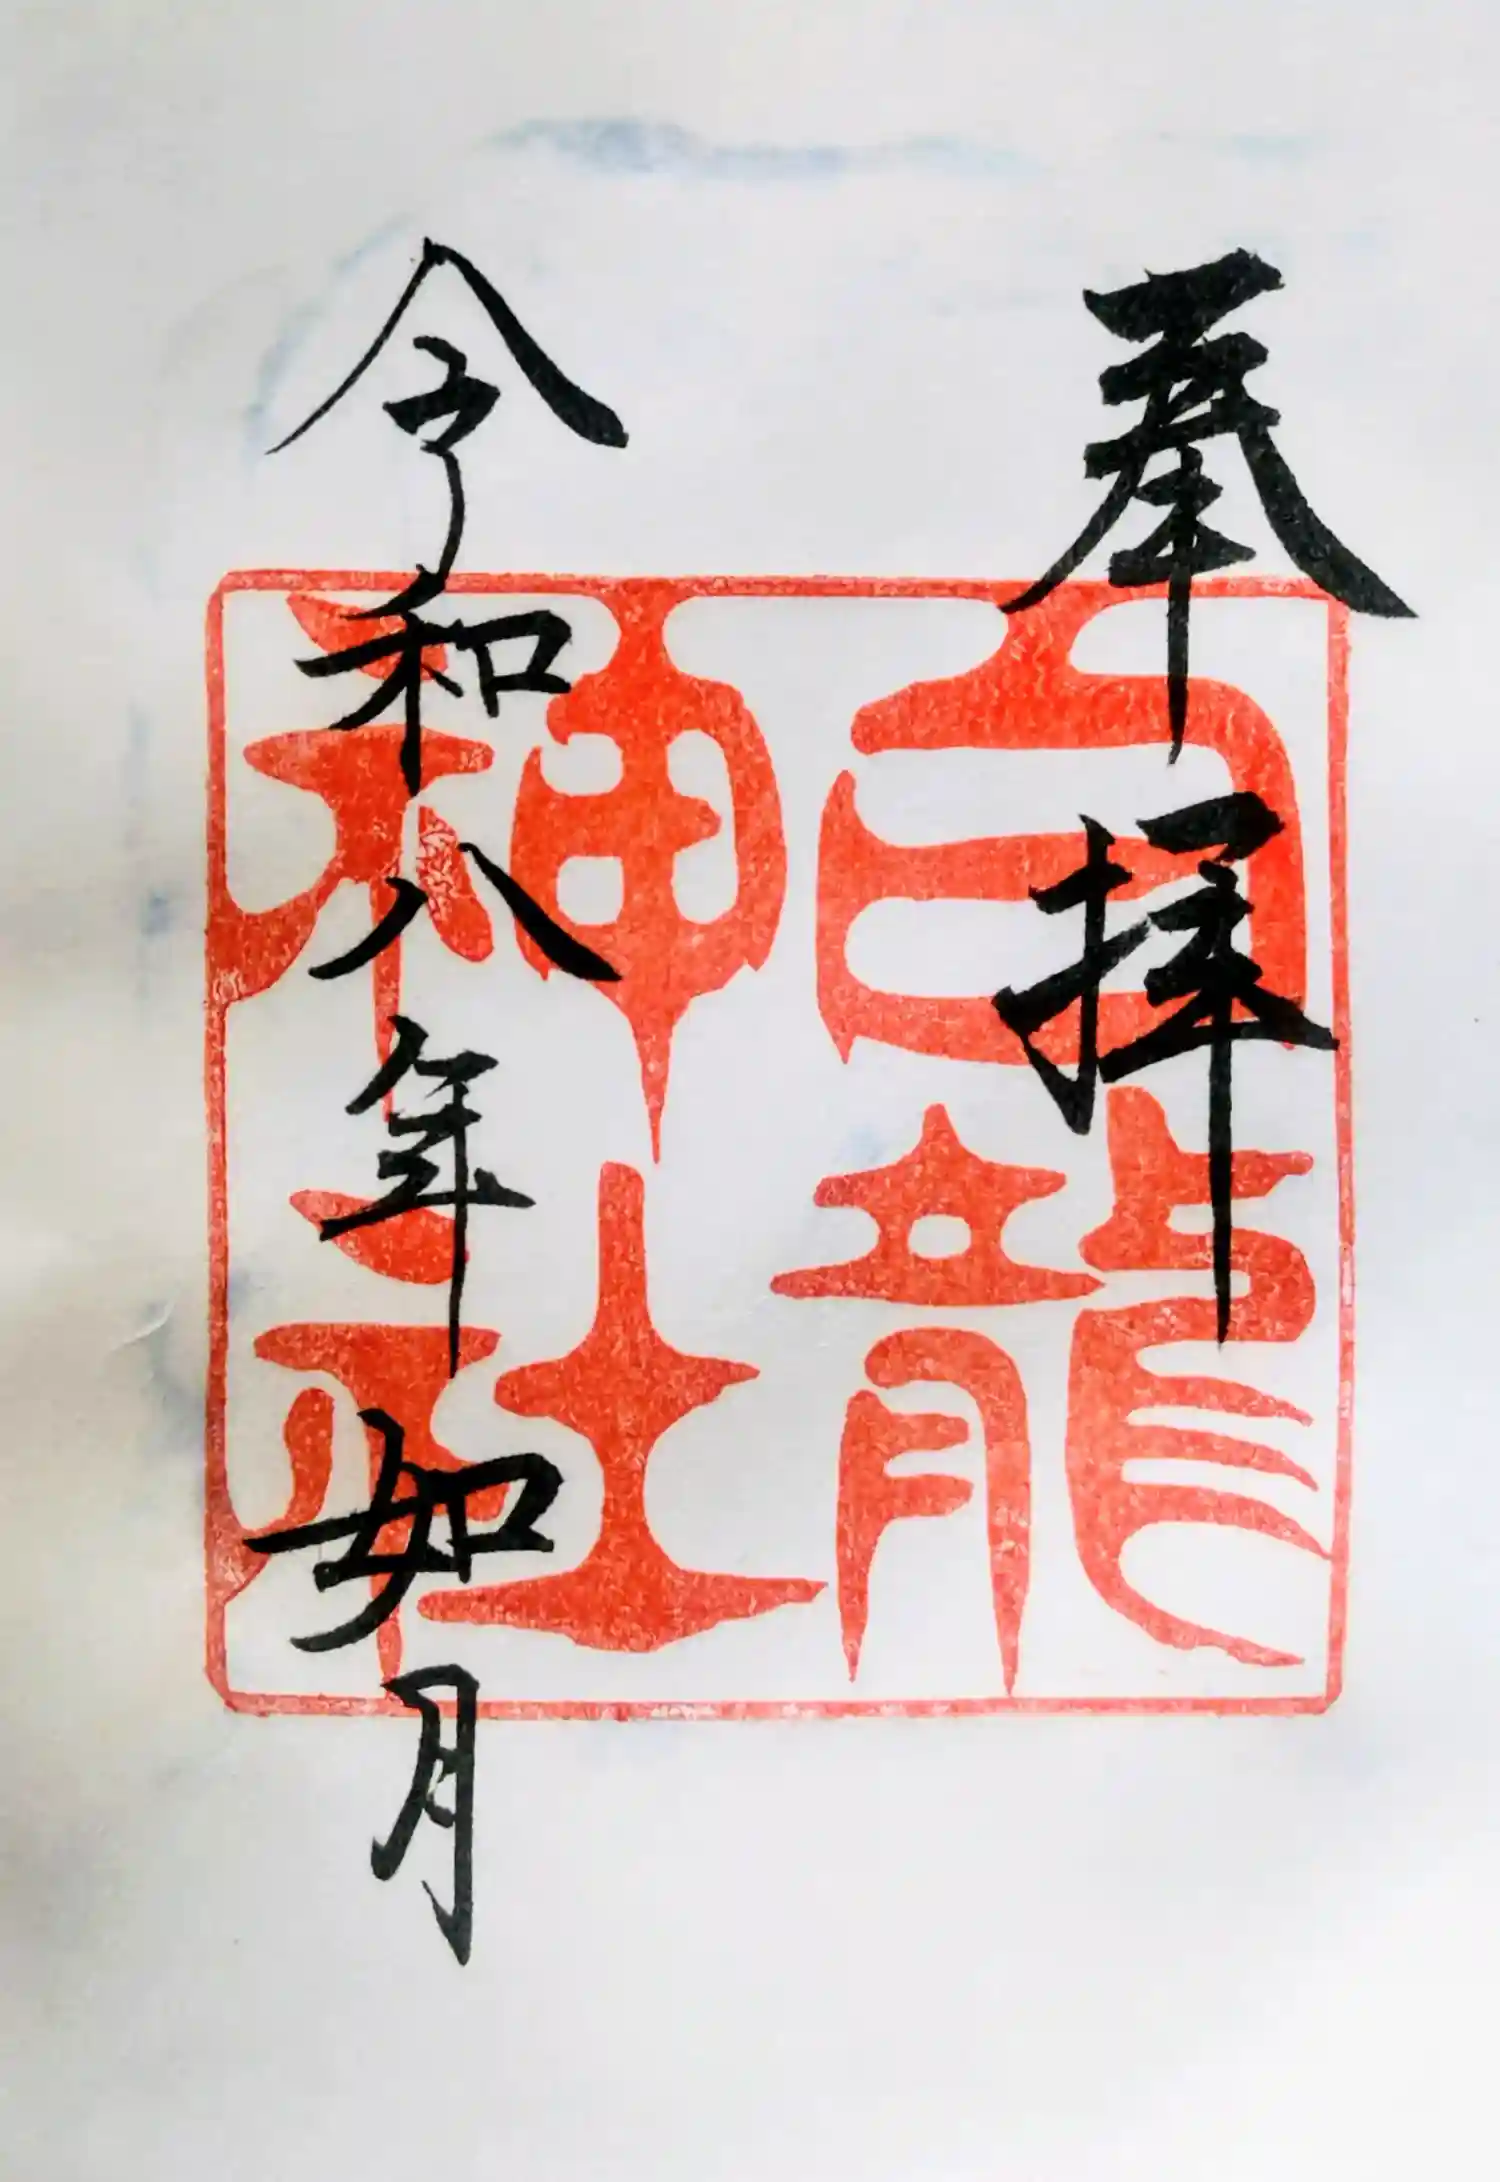 奉拝
白龍神社
令和八年如月